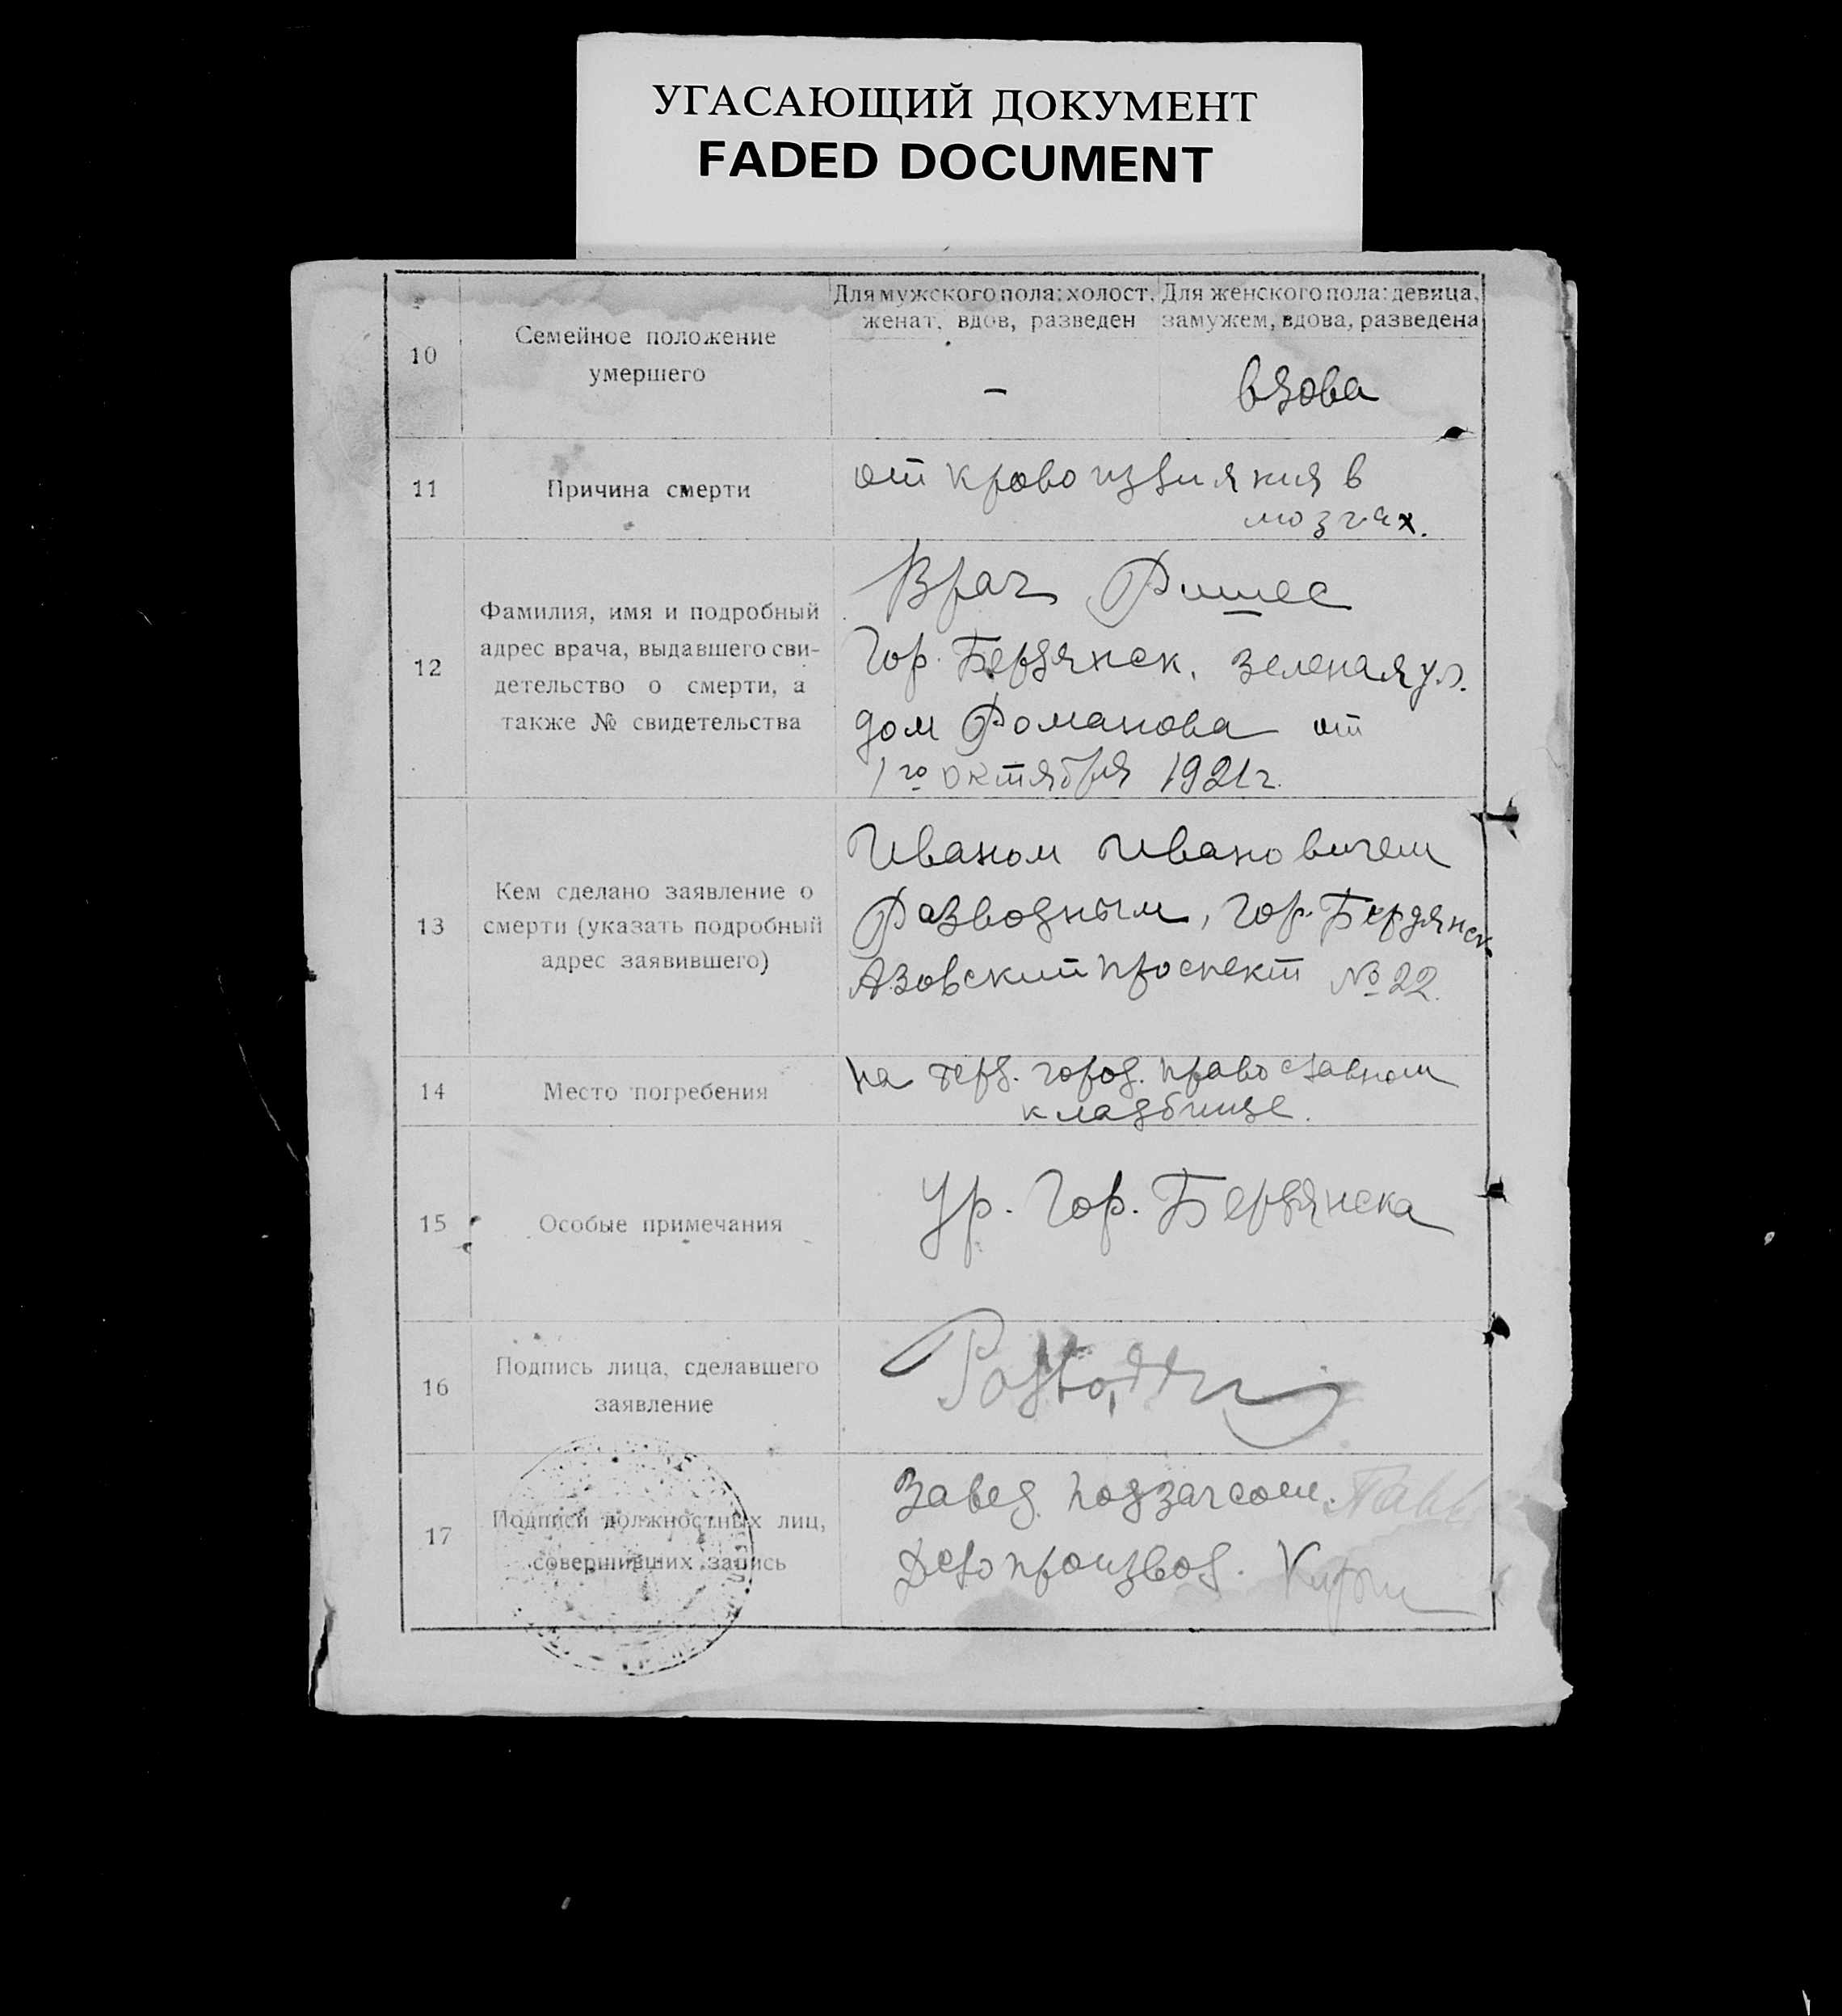 УГАСАЮЩИЙ ДОКУМЕНТ
FADED DOCUMENT
10
Семейное положение
умершего
Для мужского пола: холост,
женат, вдов, разведен
Для женского пола: девица,
замужем, вдова, разведена
–
вдова
11
Причина смерти
от кровоизлияния в
мозгах.
12
Фамилия, имя и подробный
адрес врача, выдавшего сви-
детельство о смерти, а
также № свидетельства
Врач
Гор. Бердянск, Зеленая ул.
дом Романова от
1го октября 1921 г.
13
Кем сделано заявление о
смерти (указать подробный
адрес заявившего)
Иваном Ивановичем
Разводным, Гор. Бердянск
Азовский проспект № 22.
14
Место погребения
на берд. город. православном
кладбище.
15
Особые примечания
Ур. Гор. Бердянска
16
Подпись лица, сделавшего
заявление
17
Подписи должностных лиц,
совершивших запись
Завед. подзагсом.
Делопроизвод.